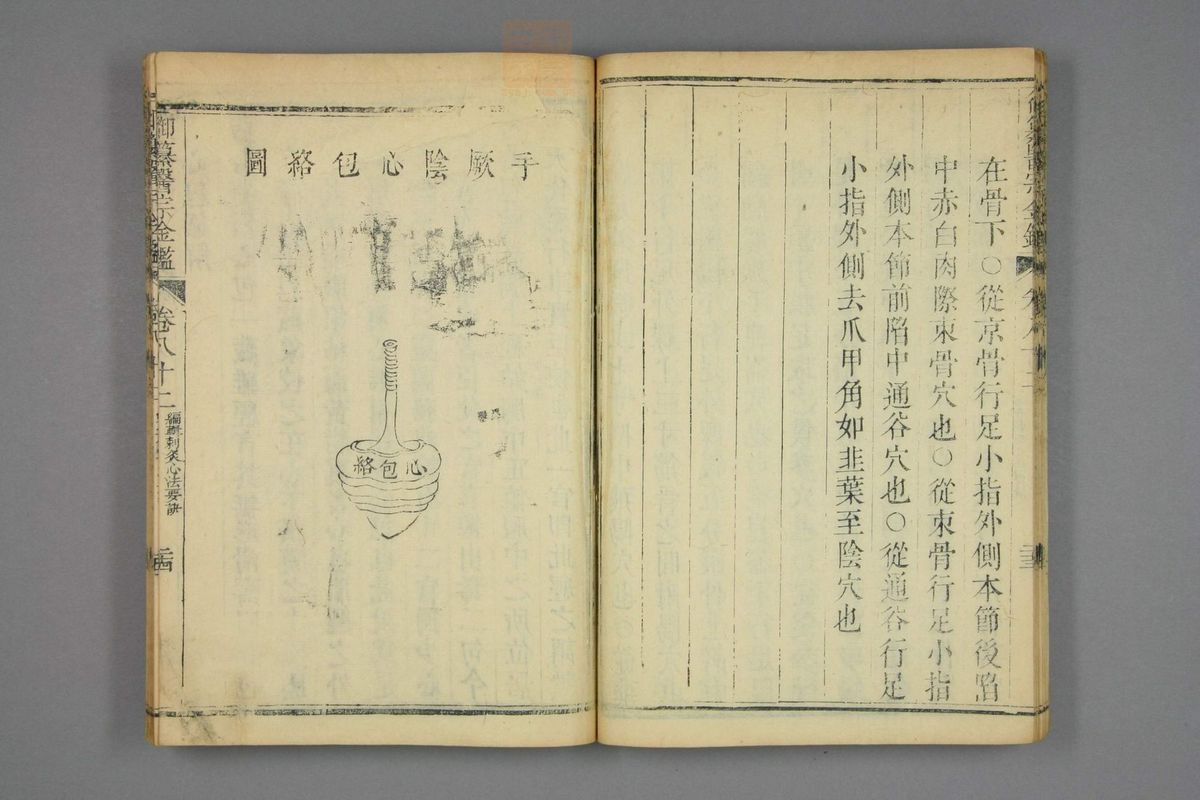 在骨下○從京骨行足小指外側本節後陷
中赤白肉際束骨穴也○從束骨行足小指
外側本節前陷中通谷穴也○從通谷行足
小指外側去爪甲角如韭葉至陰穴也
手厥陰心包絡圖
心包絡
御纂醫宗金鑑
卷八十二
編輯刺灸心法要訣